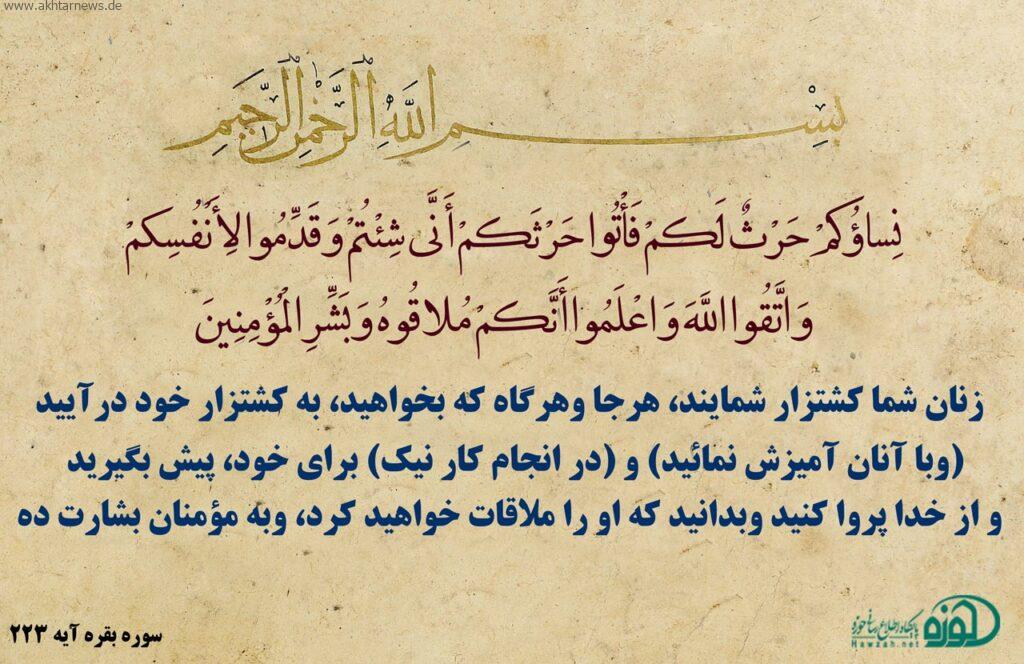 www.akhtarnews.de
بِسْمِ اللَّهِ الرَّحْمَٰنِ الرَّحِيمِ
نِساؤُكُمْ حَرْثٌ لَكُمْ فَأْتُوا حَرْثَكُمْ أَنَّى شِئْتُمْ وَ قَدِّمُوا لِأَنْفُسِكُمْ
وَ اتَّقُوا اللَّهَ وَ اعْلَمُوا أَنَّكُمْ مُلاقُوهُ وَ بَشِّرِ الْمُؤْمِنِينَ
زنان شما کشتزار شمایند، هرجا وهرگاه که بخواهید، به کشتزار خود درآیید
(وبا آنان آمیزش نمائید) و (در انجام کار نیک) برای خود، پیش بگیرید
و از خدا پروا کنید وبدانید که او را ملاقات خواهید کرد، وبه مؤمنان بشارت ده
سوره بقره آیه ۲۲۳
حوزه
پایگاه اطلاع رسانی حوزه
Hawzah.net